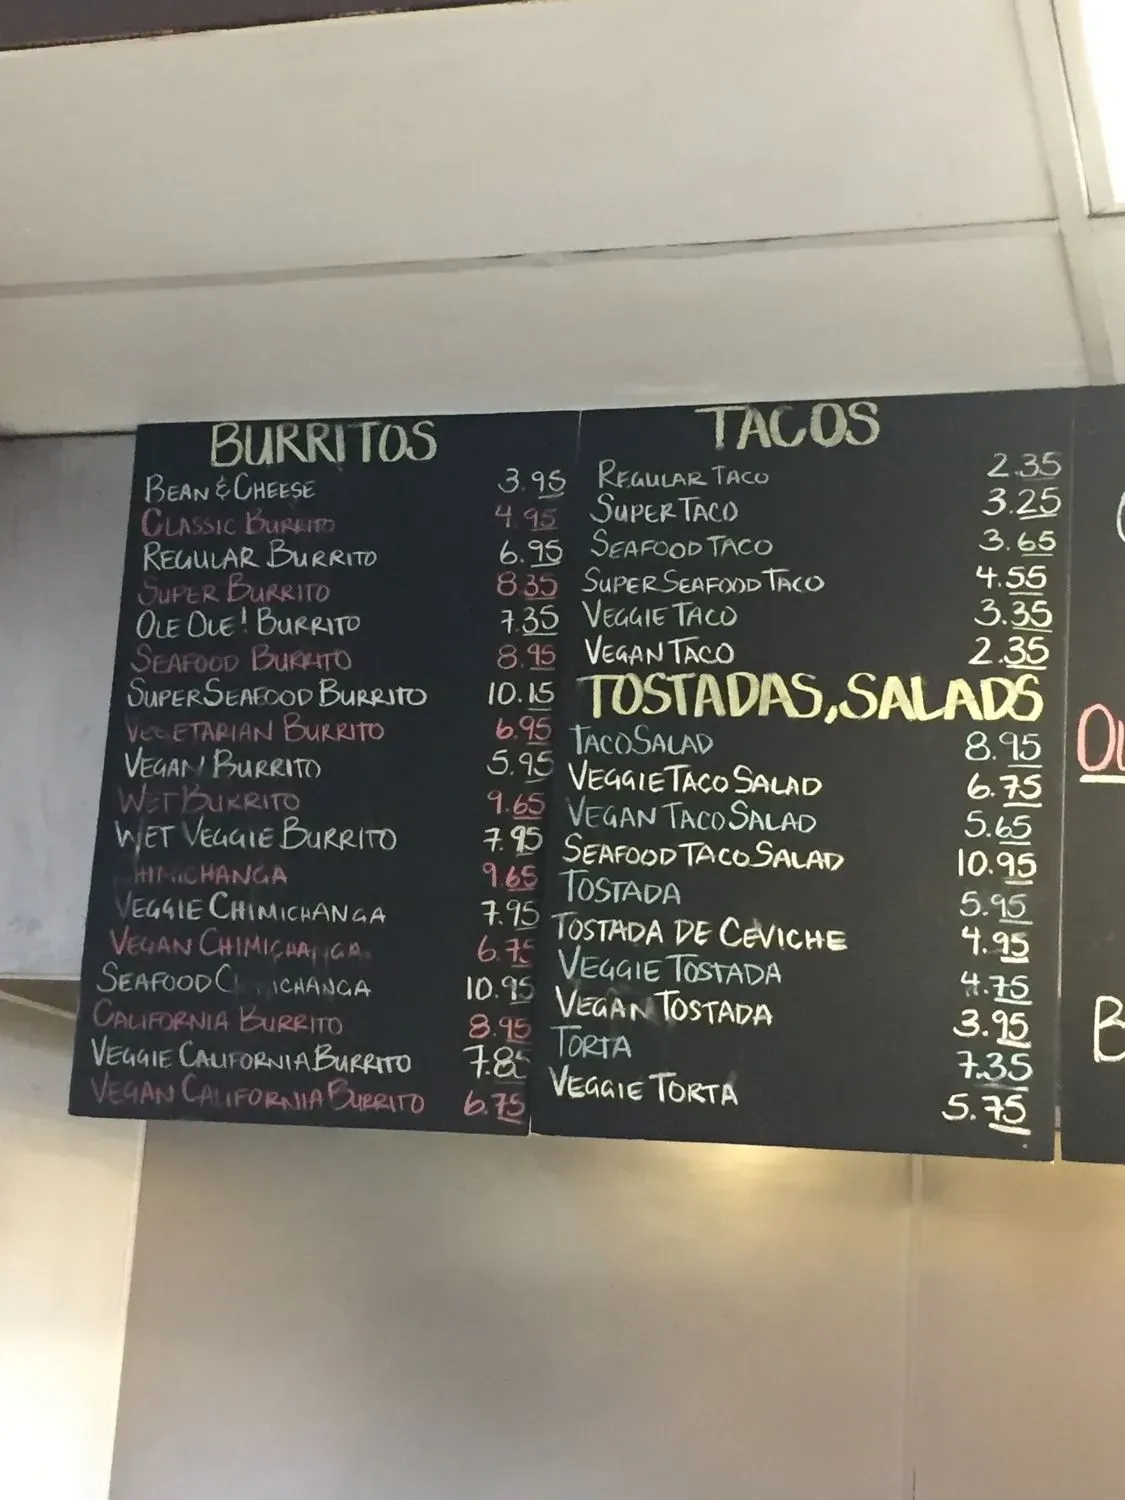 BURRITOS
BEAN & CHEESE 3.95
CLASSIC BURRITO 4.95
REGULAR BURRITO 6.95
SUPER BURRITO 8.35
OLE OLE! BURRITO 7.35
SEAFOOD BURRITO 8.95
SUPER SEAFOOD BURRITO 10.15
VEGETARIAN BURRITO 6.95
VEGAN BURRITO 5.95
WET BURRITO 9.65
WET VEGGIE BURRITO 7.95
HIMICHANGA 9.65
VEGGIE CHIMICHANGA 7.95
VEGAN CHIMICHANGA 6.75
SEAFOOD C ICHANGA 10.95
CALIFORNIA BURRITO 8.95
VEGGIE CALIFORNIA BURRITO 7.85
VEGAN CALIFORNIA BURRITO 6.75
TACOS
REGULAR TACO 2.35
SUPER TACO 3.25
SEAFOOD TACO 3.65
SUPER SEAFOOD TACO 4.55
VEGGIE TACO 3.35
VEGAN TACO 2.35
TOSTADAS, SALADS
TACO SALAD 8.95
VEGGIE TACO SALAD 6.75
VEGAN TACO SALAD 5.65
SEAFOOD TACO SALAD 10.95
TOSTADA 5.95
TOSTADA DE CEVICHE 4.95
VEGGIE TOSTADA 4.75
VEGAN TOSTADA 3.95
TORTA 7.35
VEGGIE TORTA 5.75